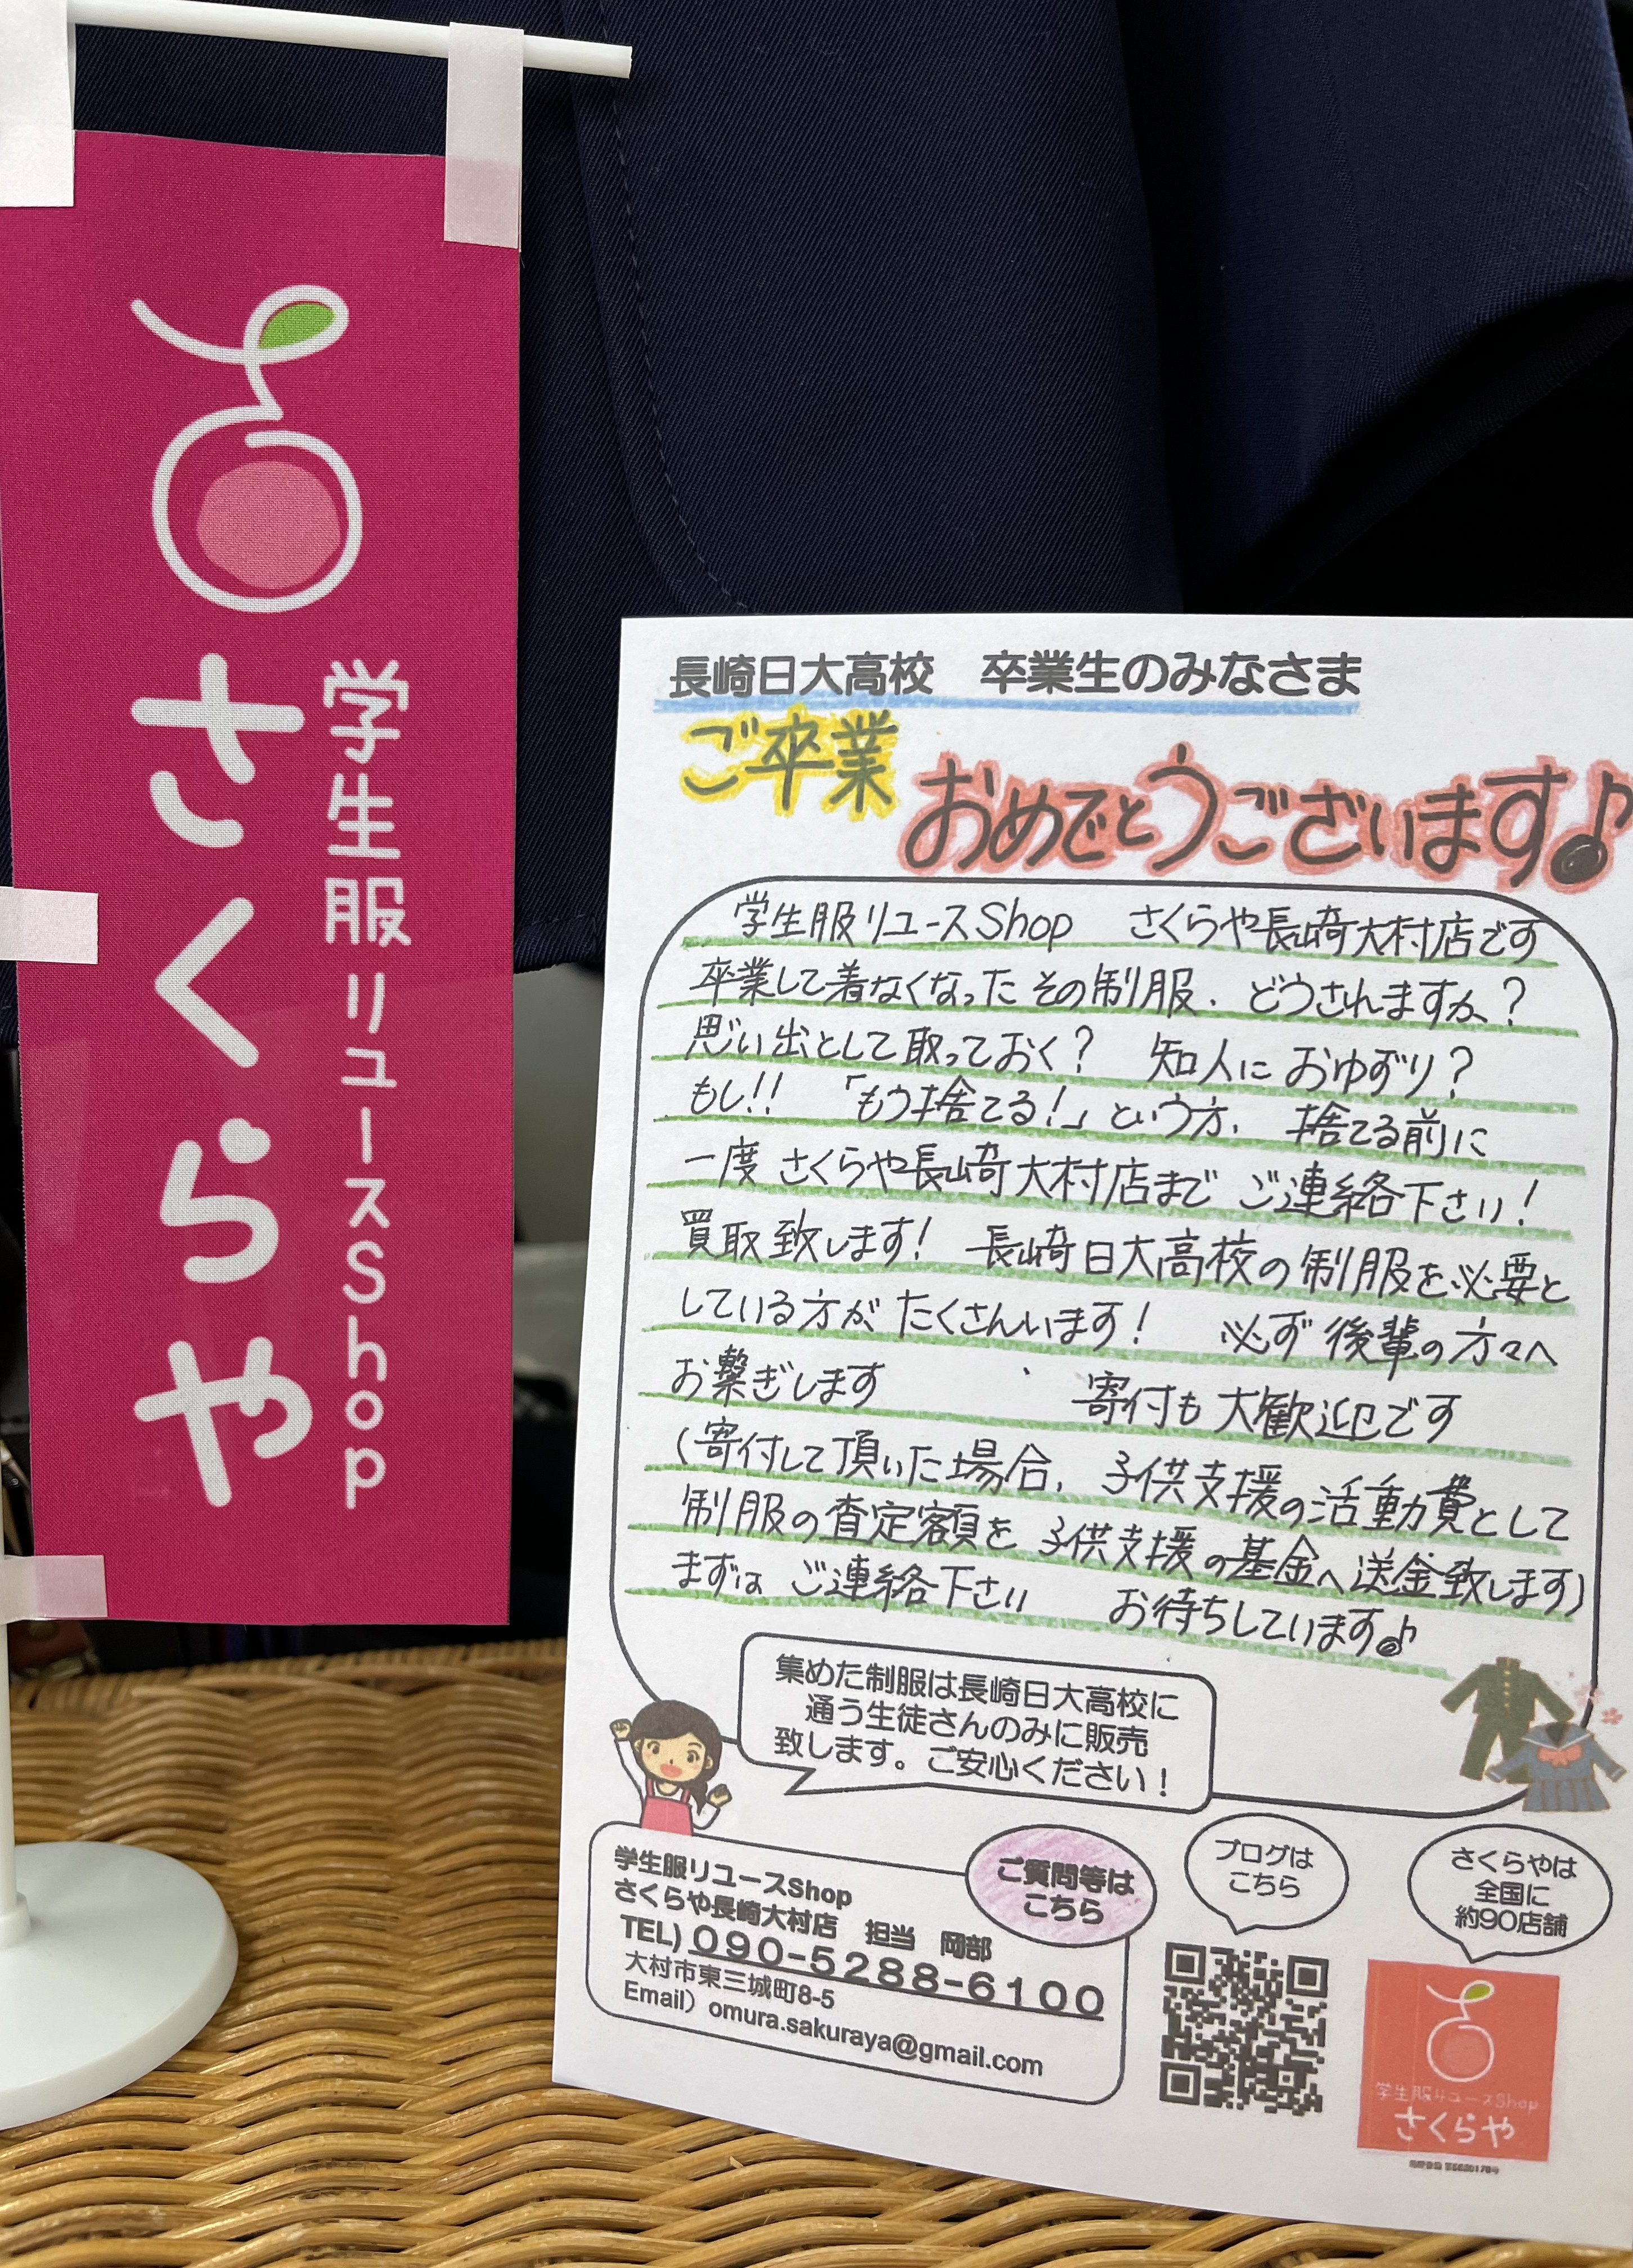 さくらや
学生服リユースShop
長崎日大高校　卒業生のみなさま
ご卒業
おめでとうございます♪
学生服リユースShop　さくらや長崎大村店です
卒業して着なくなったその制服、どうされますか？
思い出として取っておく？　知人におゆずり？
もし!!　「もう捨てる！」という方、捨てる前に
一度 さくらや長崎大村店まで ご連絡下さい！
買取致します！　長崎日大高校の制服を必要と
している方が たくさんいます！　必ず後輩の方々へ
お繋ぎします　　寄付も大歓迎です
（寄付して頂いた場合、子供支援の活動費として
制服の査定額を 子供支援の基金へ送金致します）
まずは ご連絡下さい　　お待ちしています♪
集めた制服は長崎日大高校に
通う生徒さんのみに販売
致します。ご安心ください！
ご質問等は
こちら
学生服リユースShop
さくらや長崎大村店　担当　岡部
TEL）090-5288-6100
大村市東三城町8-5
Email）omura.sakuraya@gmail.com
ブログは
こちら
さくらやは
全国に
約90店舗
学生服リユースShop
さくらや